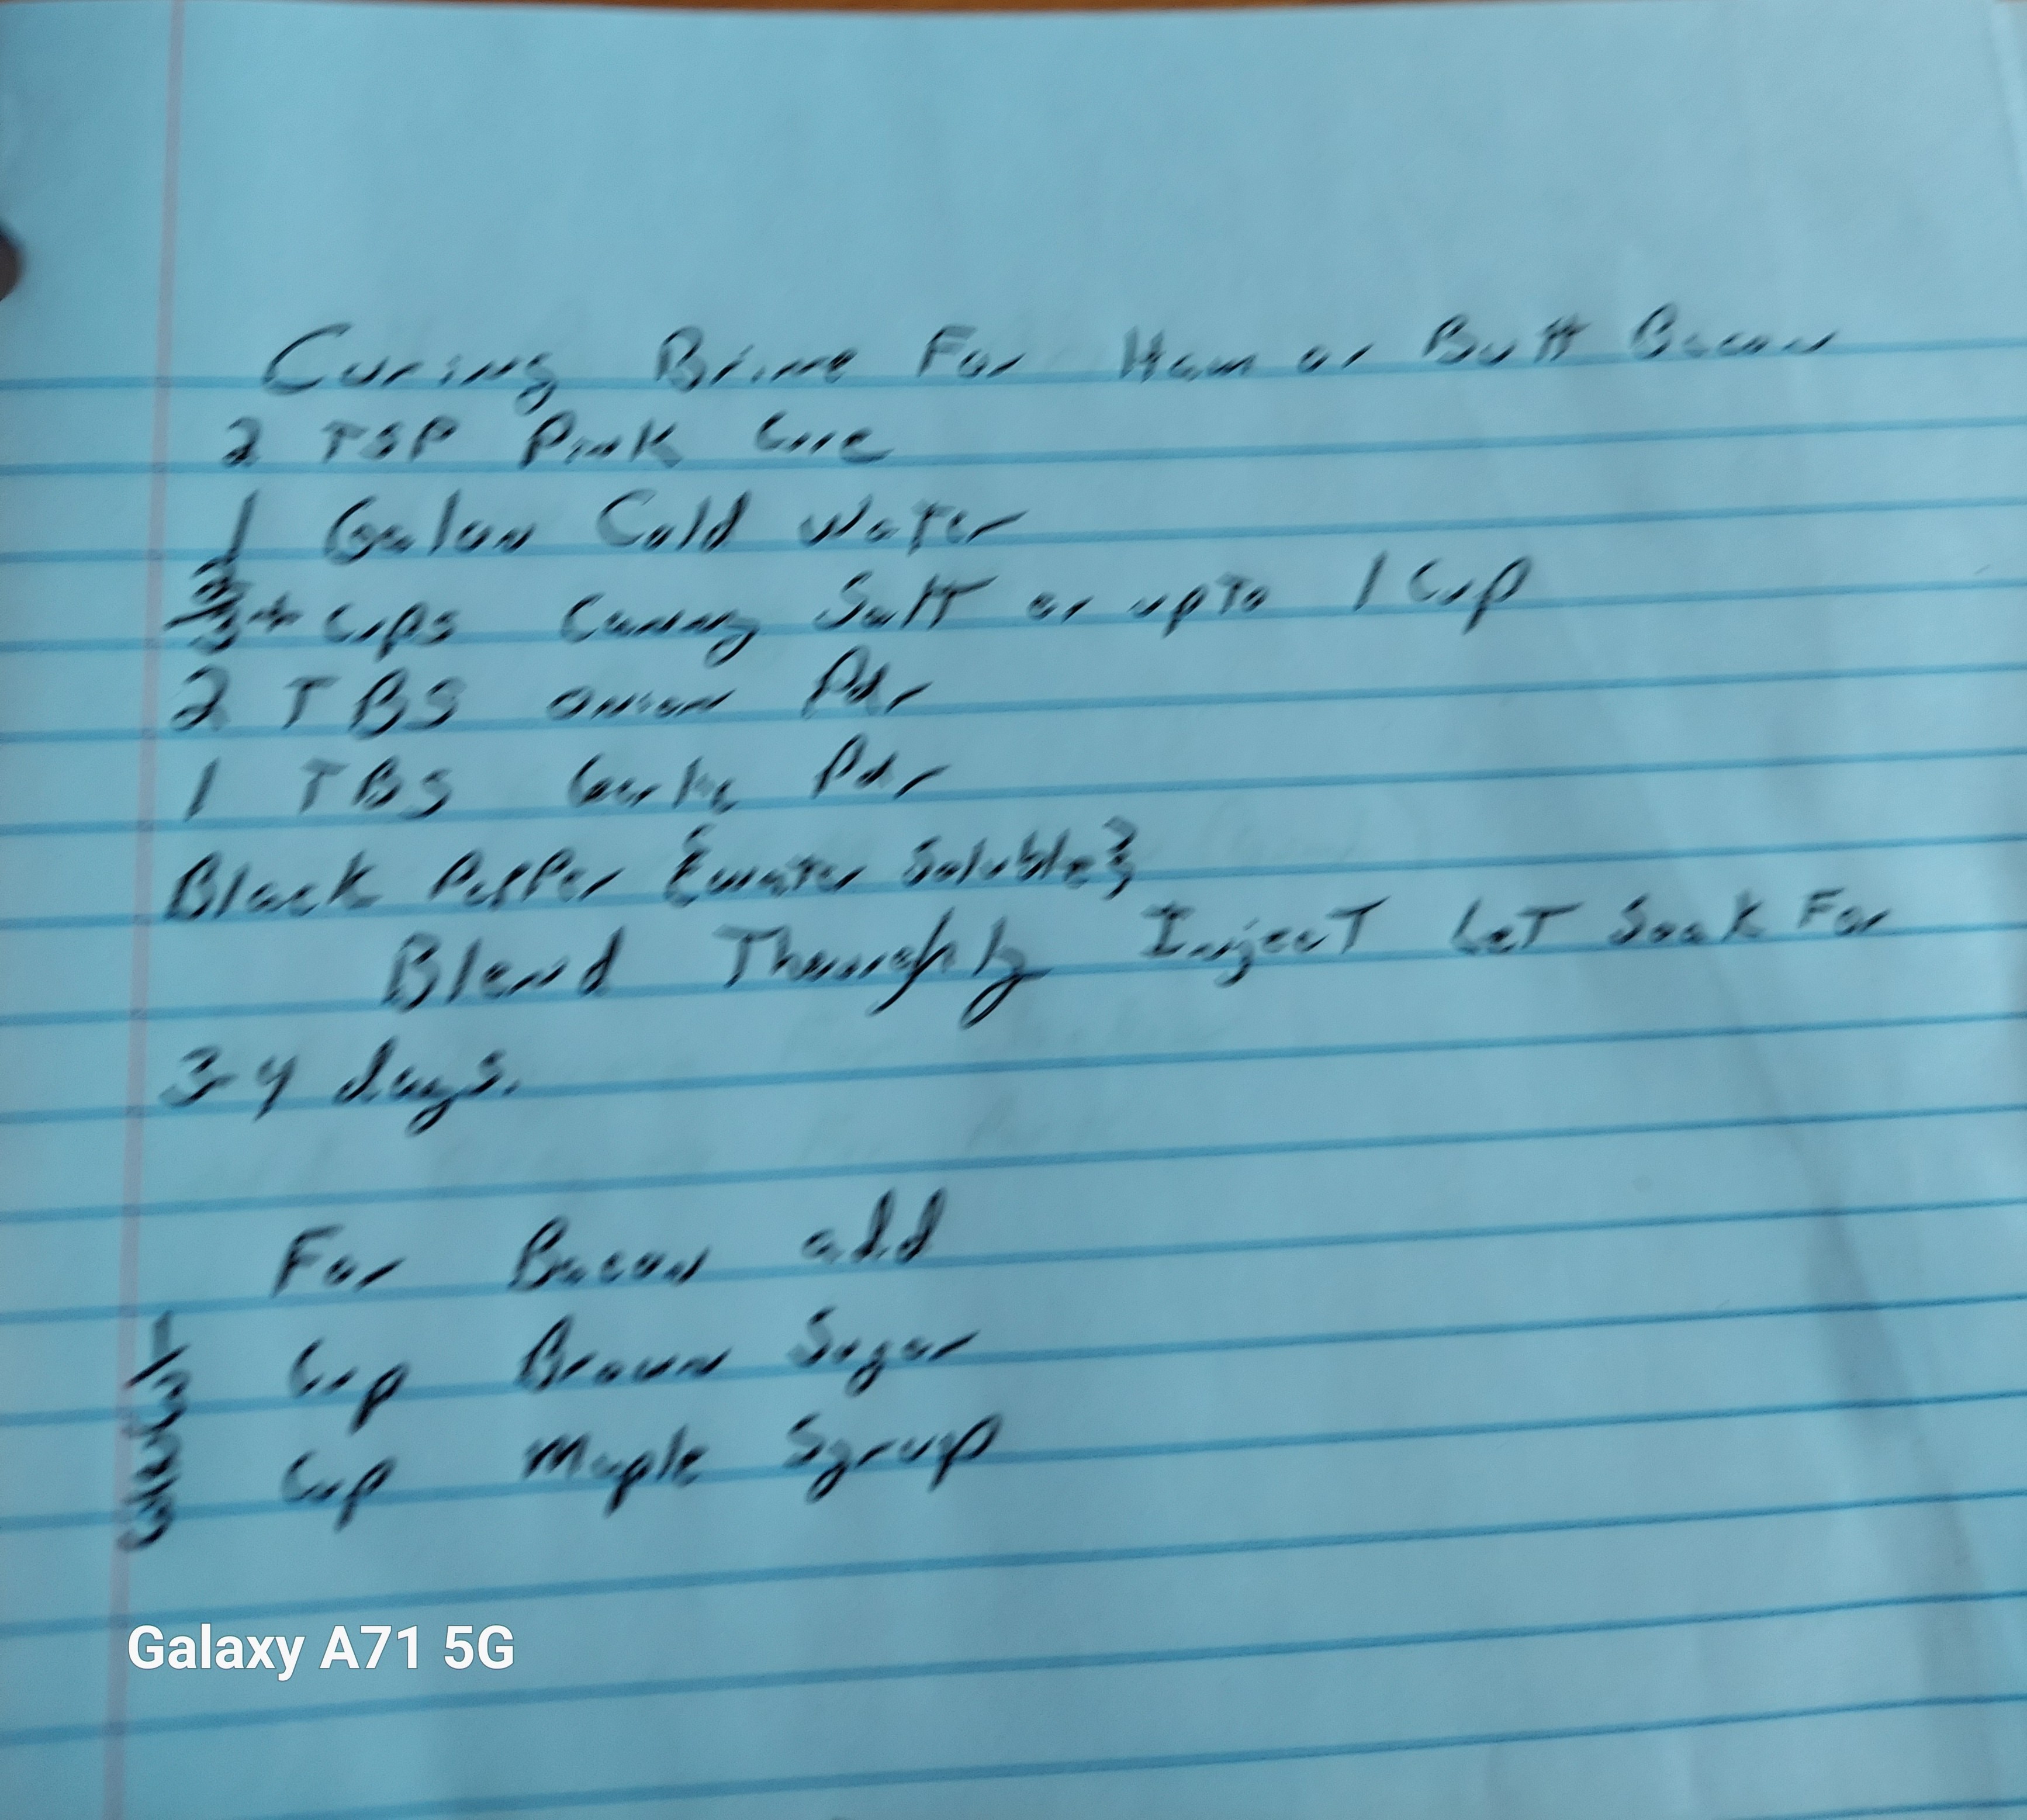 Curing Brine For Ham or Butt Bacon
2 TSP Pink Cure
1 Galon Cold Water
2/3+ Cups Curing Salt or up To 1 Cup
2 TBS onion Pdr
1 TBS Garlic Pdr
Black Pepper {water Soluble}
Blend Thouroghly Inject LeT Soak For
3-4 days.
For Bacon add
1/3 Cup Brown Sugar
2/3 Cup Maple Syrup
Galaxy A71 5G